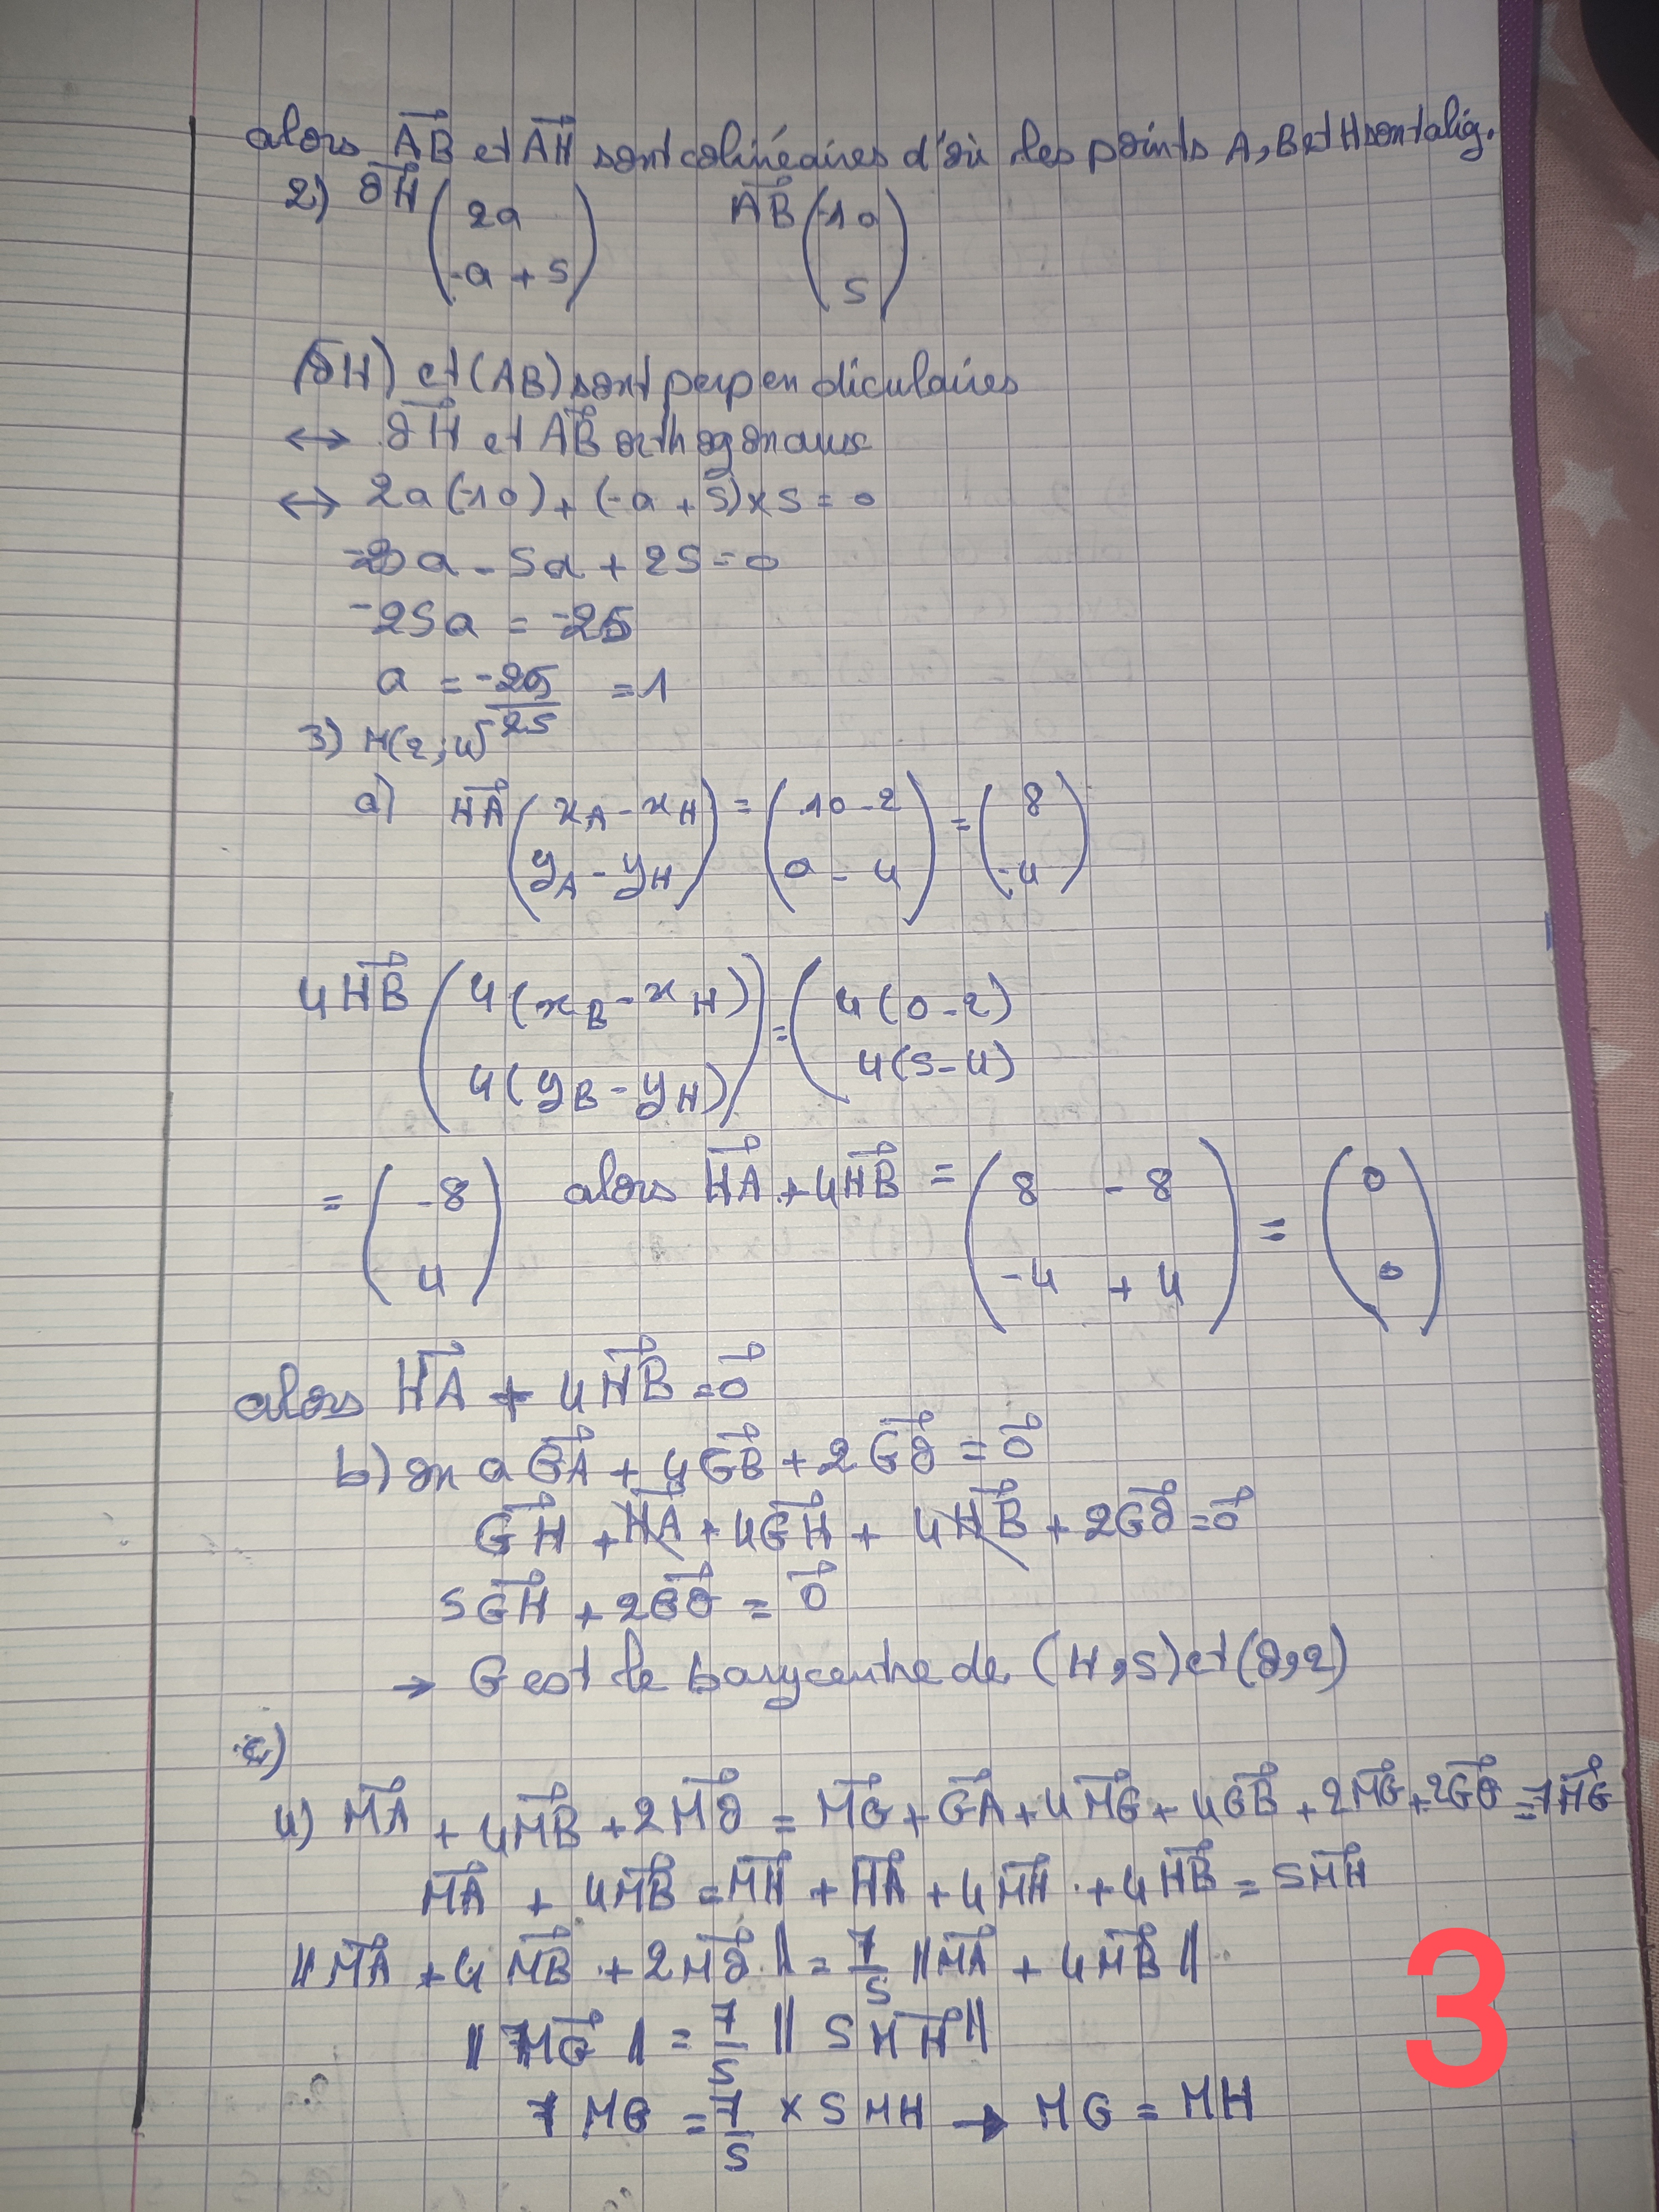 alors AB⃗ et AH⃗ sont colinéaires d'où les points A, B et H sont alig.
2) OH⃗ (2a ; -a + 5) AB⃗ (-10 ; 5)
(OH) et (AB) sont perpendiculaires
↔ OH⃗ et AB⃗ orthogonaux
↔ 2a(-10) + (-a + 5) × 5 = 0
-20a - 5a + 25 = 0
-25a = -25
a = -25/25 = 1
3) H(2; 4)
a) HA⃗ (x_A - x_H ; y_A - y_H) = (10 - 2 ; 0 - 4) = (8 ; -4)
4HB⃗ (4(x_B - x_H) ; 4(y_B - y_H)) = (4(0 - 2) ; 4(5 - 4)
= (-8 ; 4) alors HA⃗ + 4HB⃗ = (8 - 8 ; -4 + 4) = (0 ; 0)
alors HA⃗ + 4HB⃗ = 0⃗
b) on a GA⃗ + 4GB⃗ + 2GO⃗ = 0⃗
GH⃗ + HA⃗ + 4GH⃗ + 4HB⃗ + 2GO⃗ = 0⃗
5GH⃗ + 2GO⃗ = 0⃗
→ G est le barycentre de (H, 5) et (O, 2)
c)
4) MA⃗ + 4MB⃗ + 2MO⃗ = MG⃗ + GA⃗ + 4MG⃗ + 4GB⃗ + 2MG⃗ + 2GO⃗ = 7MG⃗
MA⃗ + 4MB⃗ = MH⃗ + HA⃗ + 4MH⃗ + 4HB⃗ = 5MH⃗
||MA⃗ + 4MB⃗ + 2MO⃗|| = 7/5 ||MA⃗ + 4MB⃗||
||7MG⃗|| = 7/5 ||5MH⃗||
7 MG = 7/5 × 5 MH → MG = MH
3